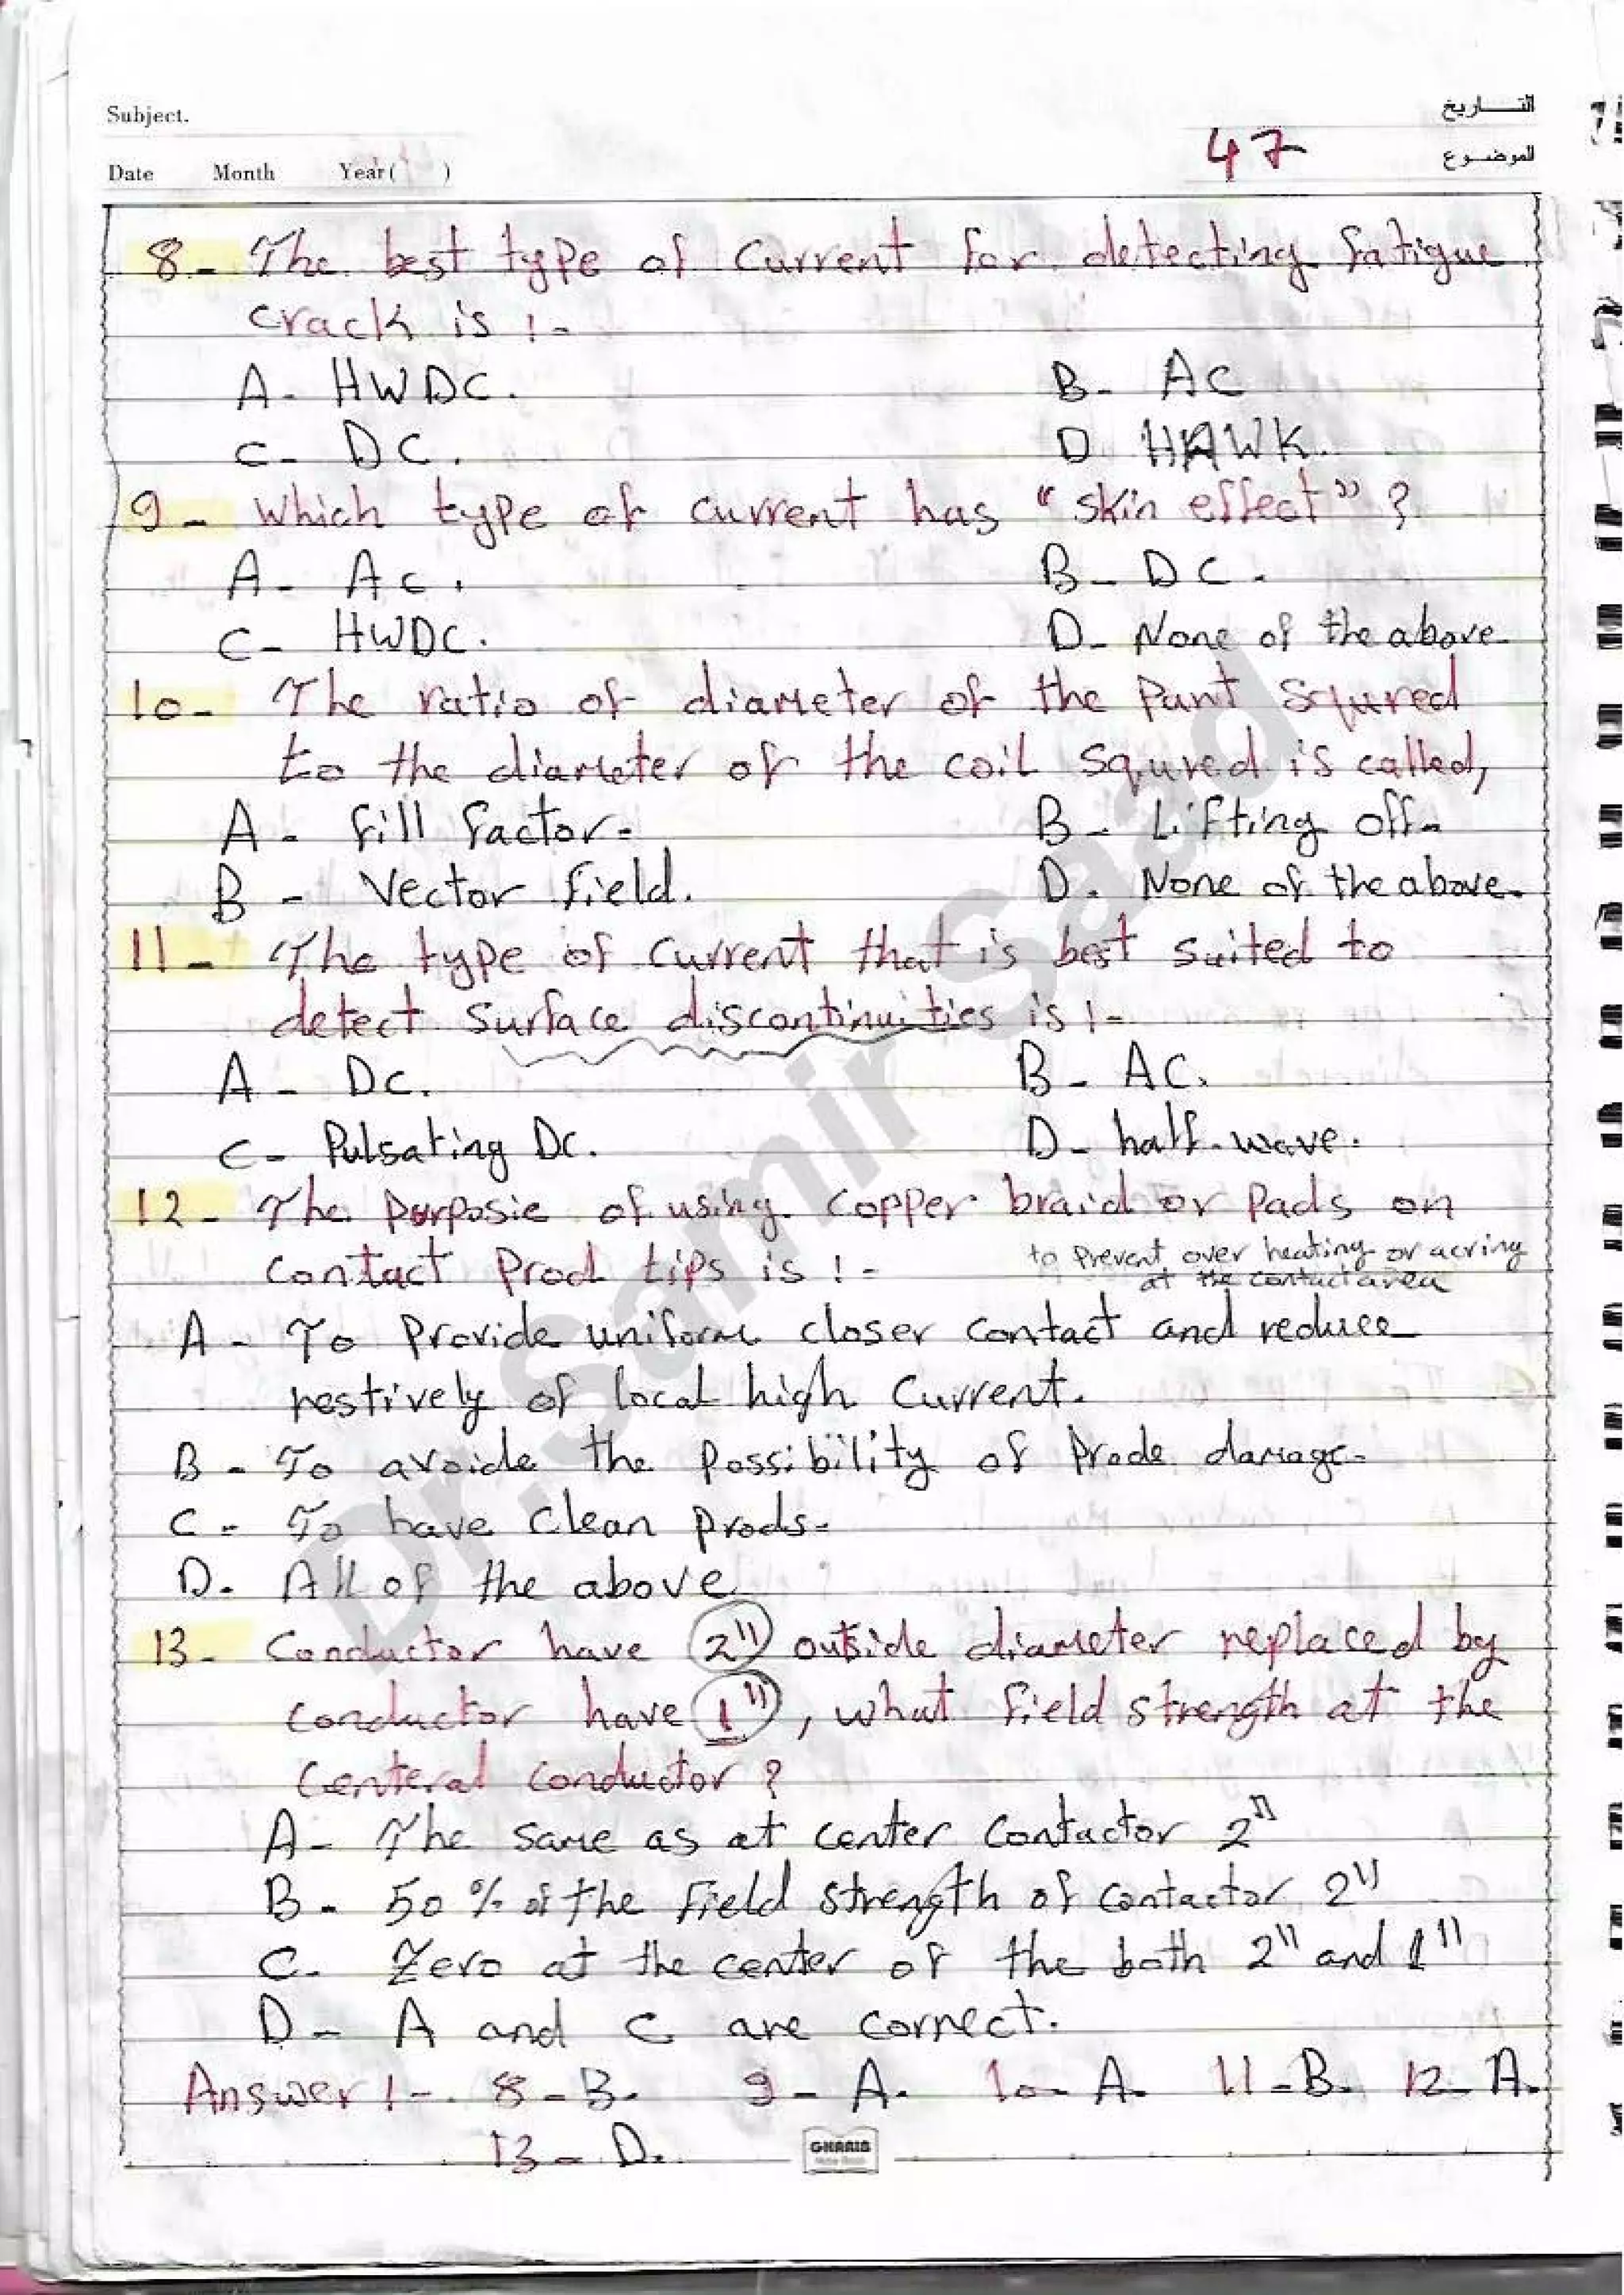 Subject.
التاريخ
47
Date Month Year ( )
الموضوع
8- The best type of current for detecting fatigue
crack is :-
A- HWDC. B- AC
C- DC. D HAWK.
9- which type of current has "skin effect"?
A- AC. B- DC.
C- HWDC. D- None of the above
10- The ratio of diameter of the Part squred
to the diameter of the coil squred is called,
A- fill factor. B- Lifting off-
B- Vector field. D. None of the above.
11- The type of current that is best suited to
detect surface discontinuities is :-
A- DC. B- AC.
C- Pulsating DC. D- half-wave.
12- The porposie of using copper braid or Pads on
contact Prod tips is :- to Prevent over heating or acring
at the contact area
A- To Provide uniform closer contact and reduce
restively of local high current.
B- To avoide the Possibility of Prode damage-
C- To have clean prods-
D. All of the above
13- Conductor have 2" outside diameter replaced by
conductor have 1", what field strength at the
centeral conductor?
A- The same as at center contactor 2"
B- 50% of the field strength of contactor 2"
C- Zero at the center of the both 2" and 1"
D- A and C are correct.
Answer :- 8-B. 9-A. 10-A. 11-B. 12-A.
13-D.
GHARIB
Note Book
Dr.Samir Saad